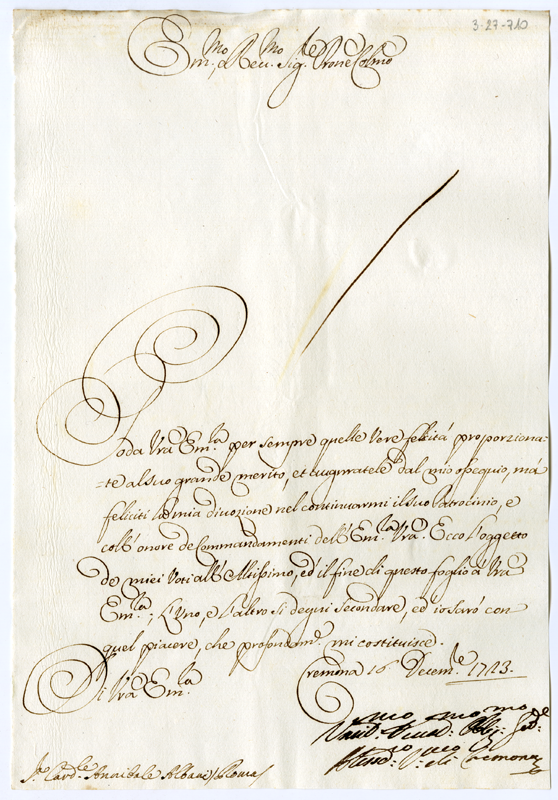 3-27-710
Em.mo e Rev.mo Sig.re Prone Colmo
Goda Vra Em.za per sempre quelle vere felicità proporziona-
-te al suo grande merito, et auguratele dal mio ossequio, mà
feliciti la mia divozione nel continuarmi il suo Patrocinio, e
coll'onore de Commandamenti dell'Em.za Vra. Ecco l'oggetto
de miei Voti all'Altissimo, ed il fine di questo foglio à Vra
Em.za; L'Uno, e l'altro si degni secondare, ed io sarò con
quel piacere, che profondam.e mi costituisce.
Cremona 16 Decem.re 1713.
Di Vra Em.za
S.r Card.le Annibale Albani / Roma /
di Cremona